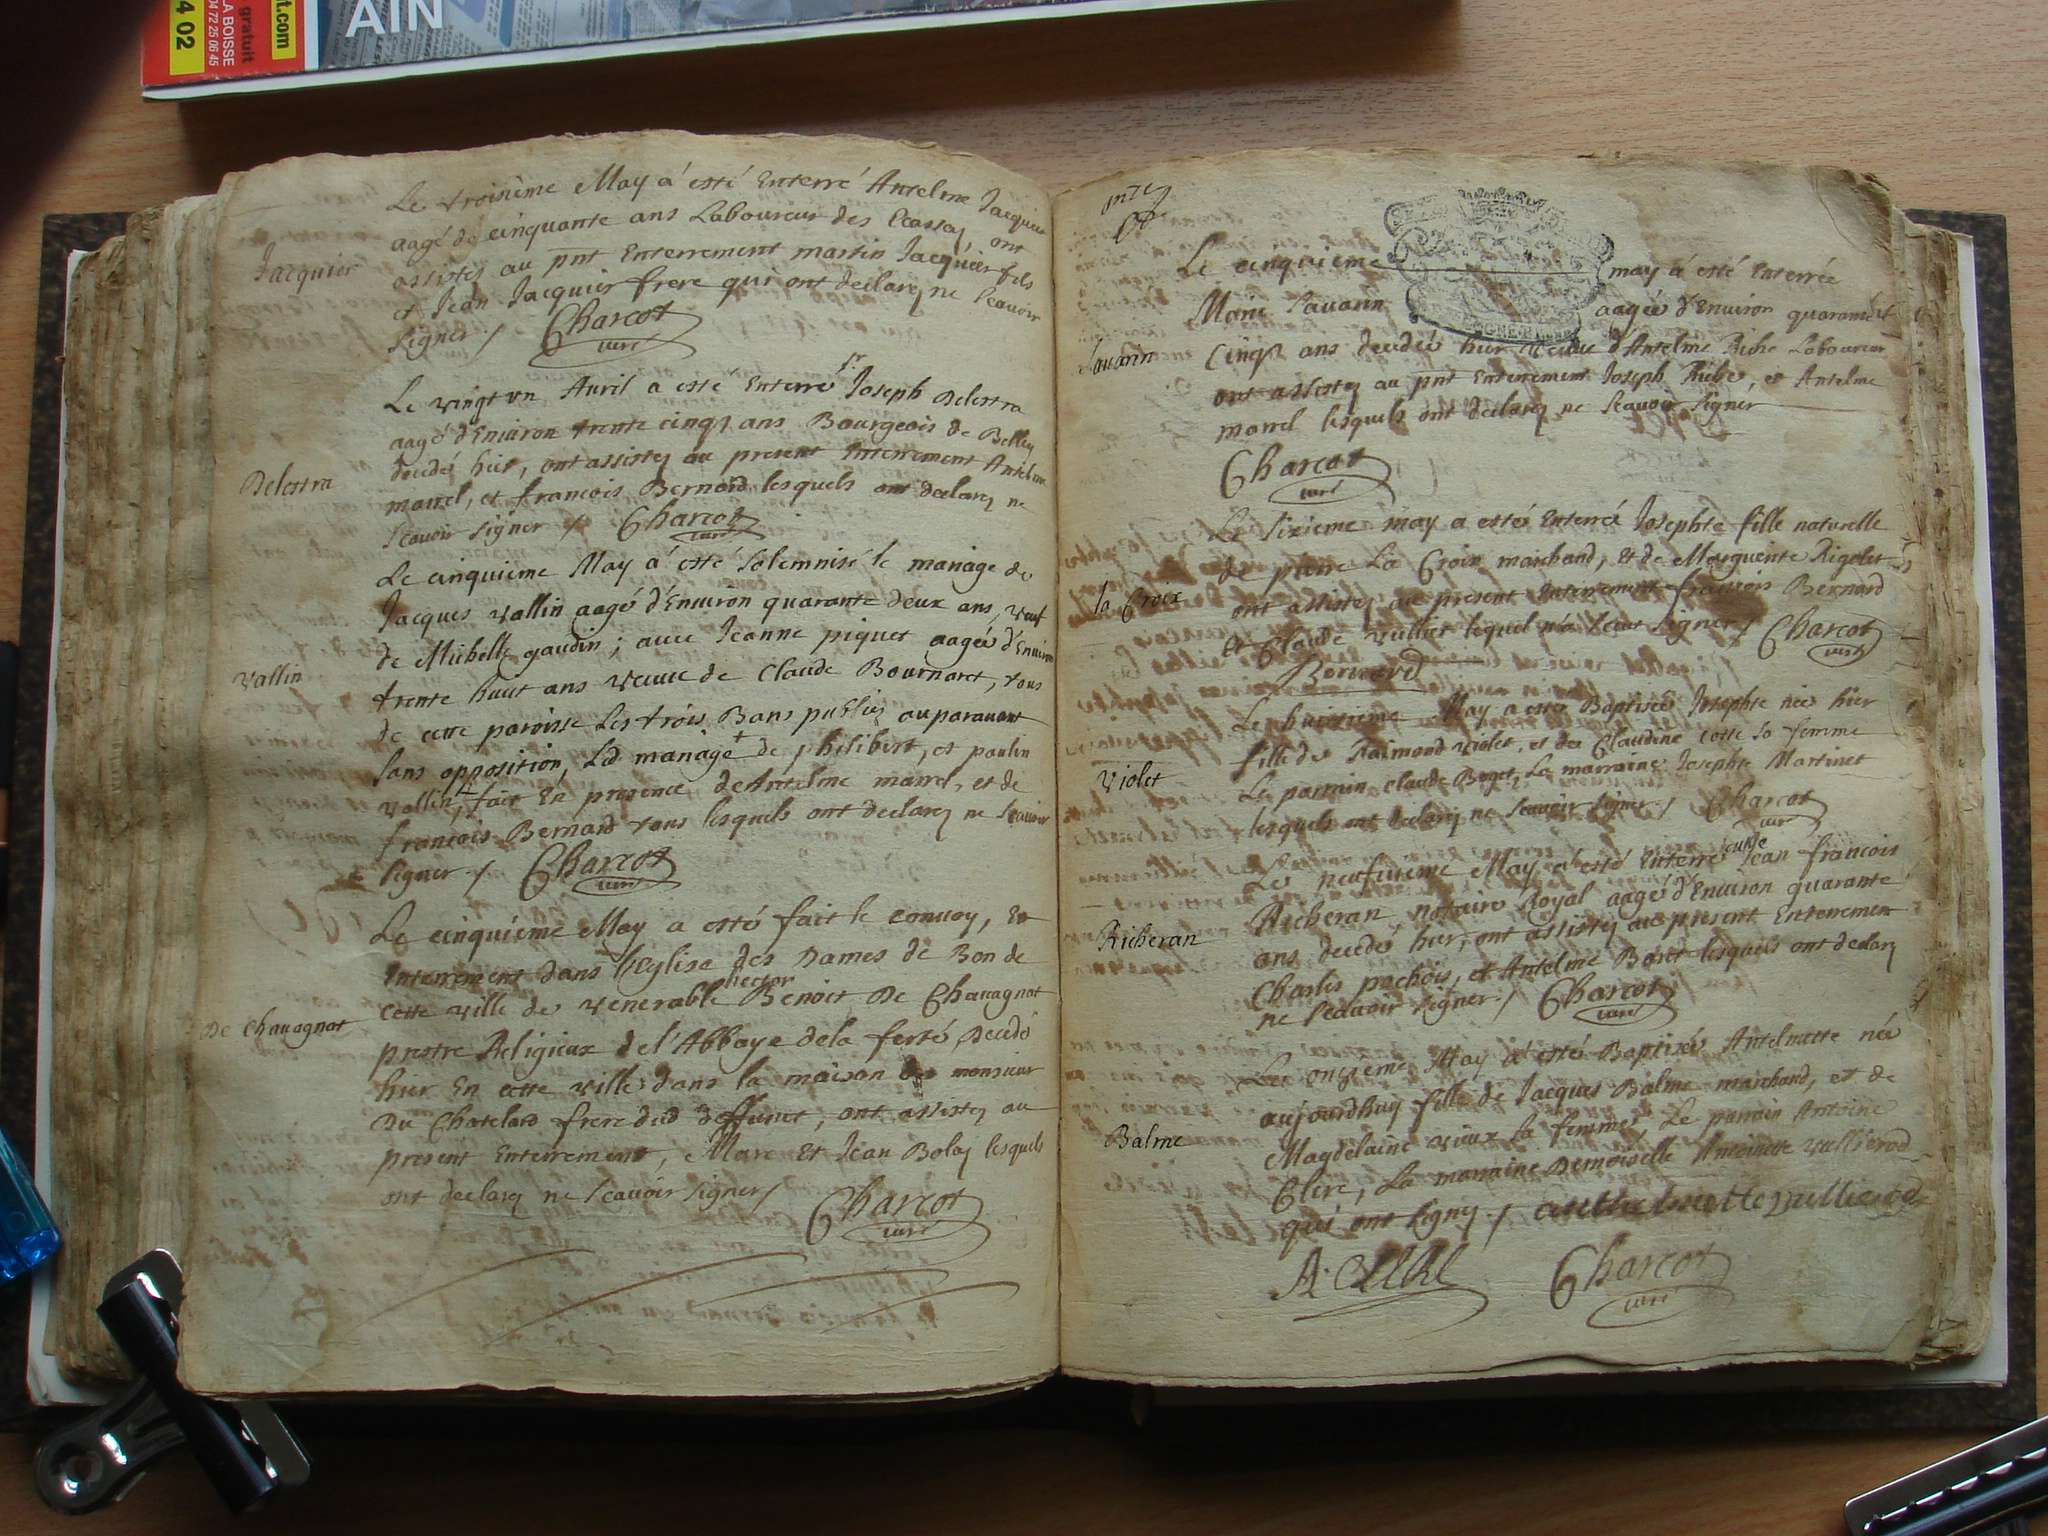 t.com
gratuit
LA BOISSE
04 72 25 06 45
4 02
AIN
Le troisième May á esté Enterré Antelme Jacquier
aagé de cinquante ans Laboureur des Ecassay, ont
Jacquier
assistez au pnt Enterrement martin Jacquier fils
et Jean Jacquier frere qui ont declarez ne scavoir
signer / Charcot
curé
Le vingt un Auril a esté Enterré Sr. Joseph Delestra
aagé d'Enuiron trente cinq ans Bourgeois de Belley
Delestra
decedé hier, ont assistez au present Enterrement Antelme
marrel, et francois Bernard lesquels ont declarez ne
scauoir signer / Charcot
curé
Le cinquième May á esté solemnisé le mariage de
Jacques vallin aagé d'Enuiron quarante deux ans, veuf
de Michelle gaudin; auec Jeanne piquet aagée d'Enuiron
Vallin
trente huict ans veuue de Claude Bournaret, tous
de cette paroisse Les trois Bans publiés auparauant
sans opposition, Led mariage + de philibert, et paulin
vallin, fait En presence de Antelme marrel, et de
francois Bernard tous lesquels ont declarez ne scauoir
signer / Charcot
curé
Le cinquième May a esté fait le conuoy, Et
Enterrement dans l'Eglise des Dames de Bon de
cette ville de venerable hector Benoict De Chauagnat
De Chauagnat
prestre Religieux de l'Abbaye de la ferté, Decedé
hier En cette ville dans la maison de monsieur
Du Chatelard frere dud deffunct, ont assistez au
present Enterrement, Marc Et Jean Bolay lesquels
ont declarez ne scauoir signer / Charcot
curé
onze
Le cinquième may á esté Enterrée
Marie Sauarin aagée d'Enuiron quarante et
Sauarin
cinq ans decedée hier veuue d'Antelme Ribe Laboureur
ont assistez au pnt Enterrement Joseph Ribe, et Antelme
marrel lesquels ont declarez ne scauoir signer
Charcot
curé
Le sixieme may a estée Enterrée Josephte fille naturelle
de pierre La Croix marchand, Et de Marguerite Rigolet
la Croix
ont assistez au present Enterrement francois Bernard
et Claude vullier lequel n'a sceut signer / Charcot
curé
Bernard
Le huictieme May a esté Baptisée Josephte née hier
fille de Raimond violet, et de Claudine cotte sa femme
Violet
Le parrain claude Boget, La marraine Josephte Martinet
lesquels ont declarez ne scauoir signer / Charcot
curé
Le neufuieme May a esté Enterré Jean francois
Richeran notaire Royal aagé d'Enuiron quarante
Richeran
ans decedé hier, ont assistez au present Enterrement
Charles pochois, et Antelme Boret lesquels ont declarez
ne scauoir signer / Charcot
curé
Le onzieme May a esté Baptisée Antelmette née
aujourdhuy fille de Jacques Balme marchand, et de
Balme
Magdelaine vieux sa femme, Le parrain Antoine
Clerc, La marraine Demoiselle Antelmette vullierod
qui ont signy / anthelmette vullierod
A. Clerc Charcot
curé